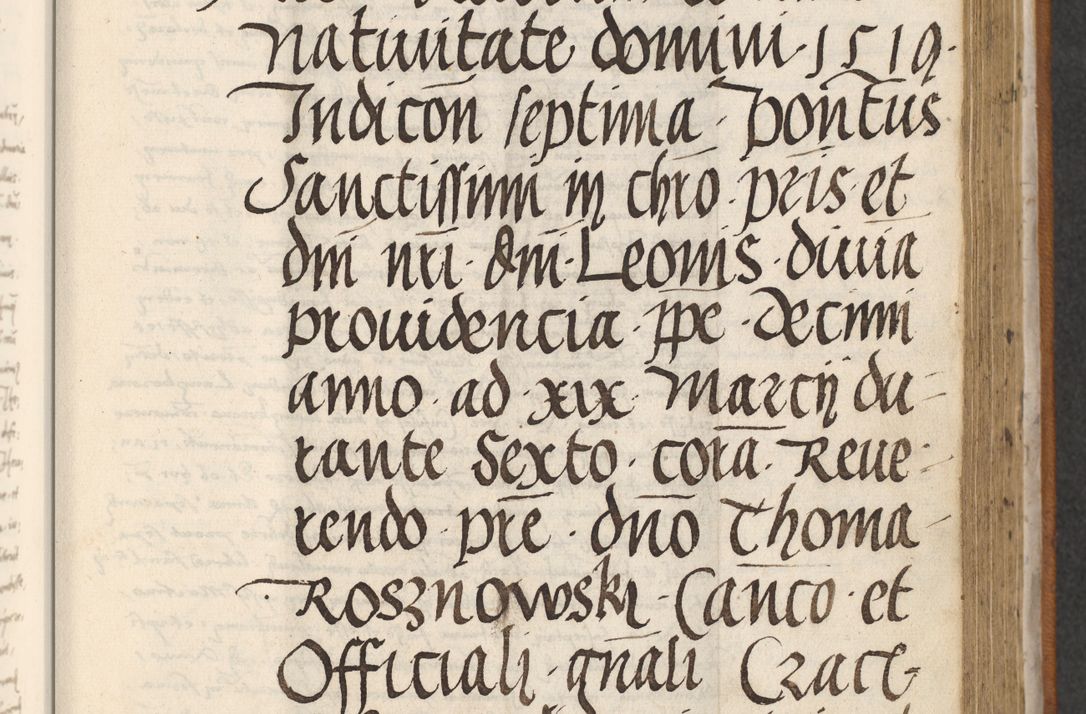 Natiuitate domini · 1519 ·
Indicōn septima · Pontus̄
Sanctissimi in chr̄o · pr̄is et
dn̄i nr̄i · dn̄i · Leonis · diuīa
prouidencia · pp̄e · decimi
anno · ad xix Marcij du-
rante sexto · corā · Reue-
rendo pr̄e · dn̄o Thoma
Rosznowski · Canco̅ · et
Officiali · gn̄ali Crace-